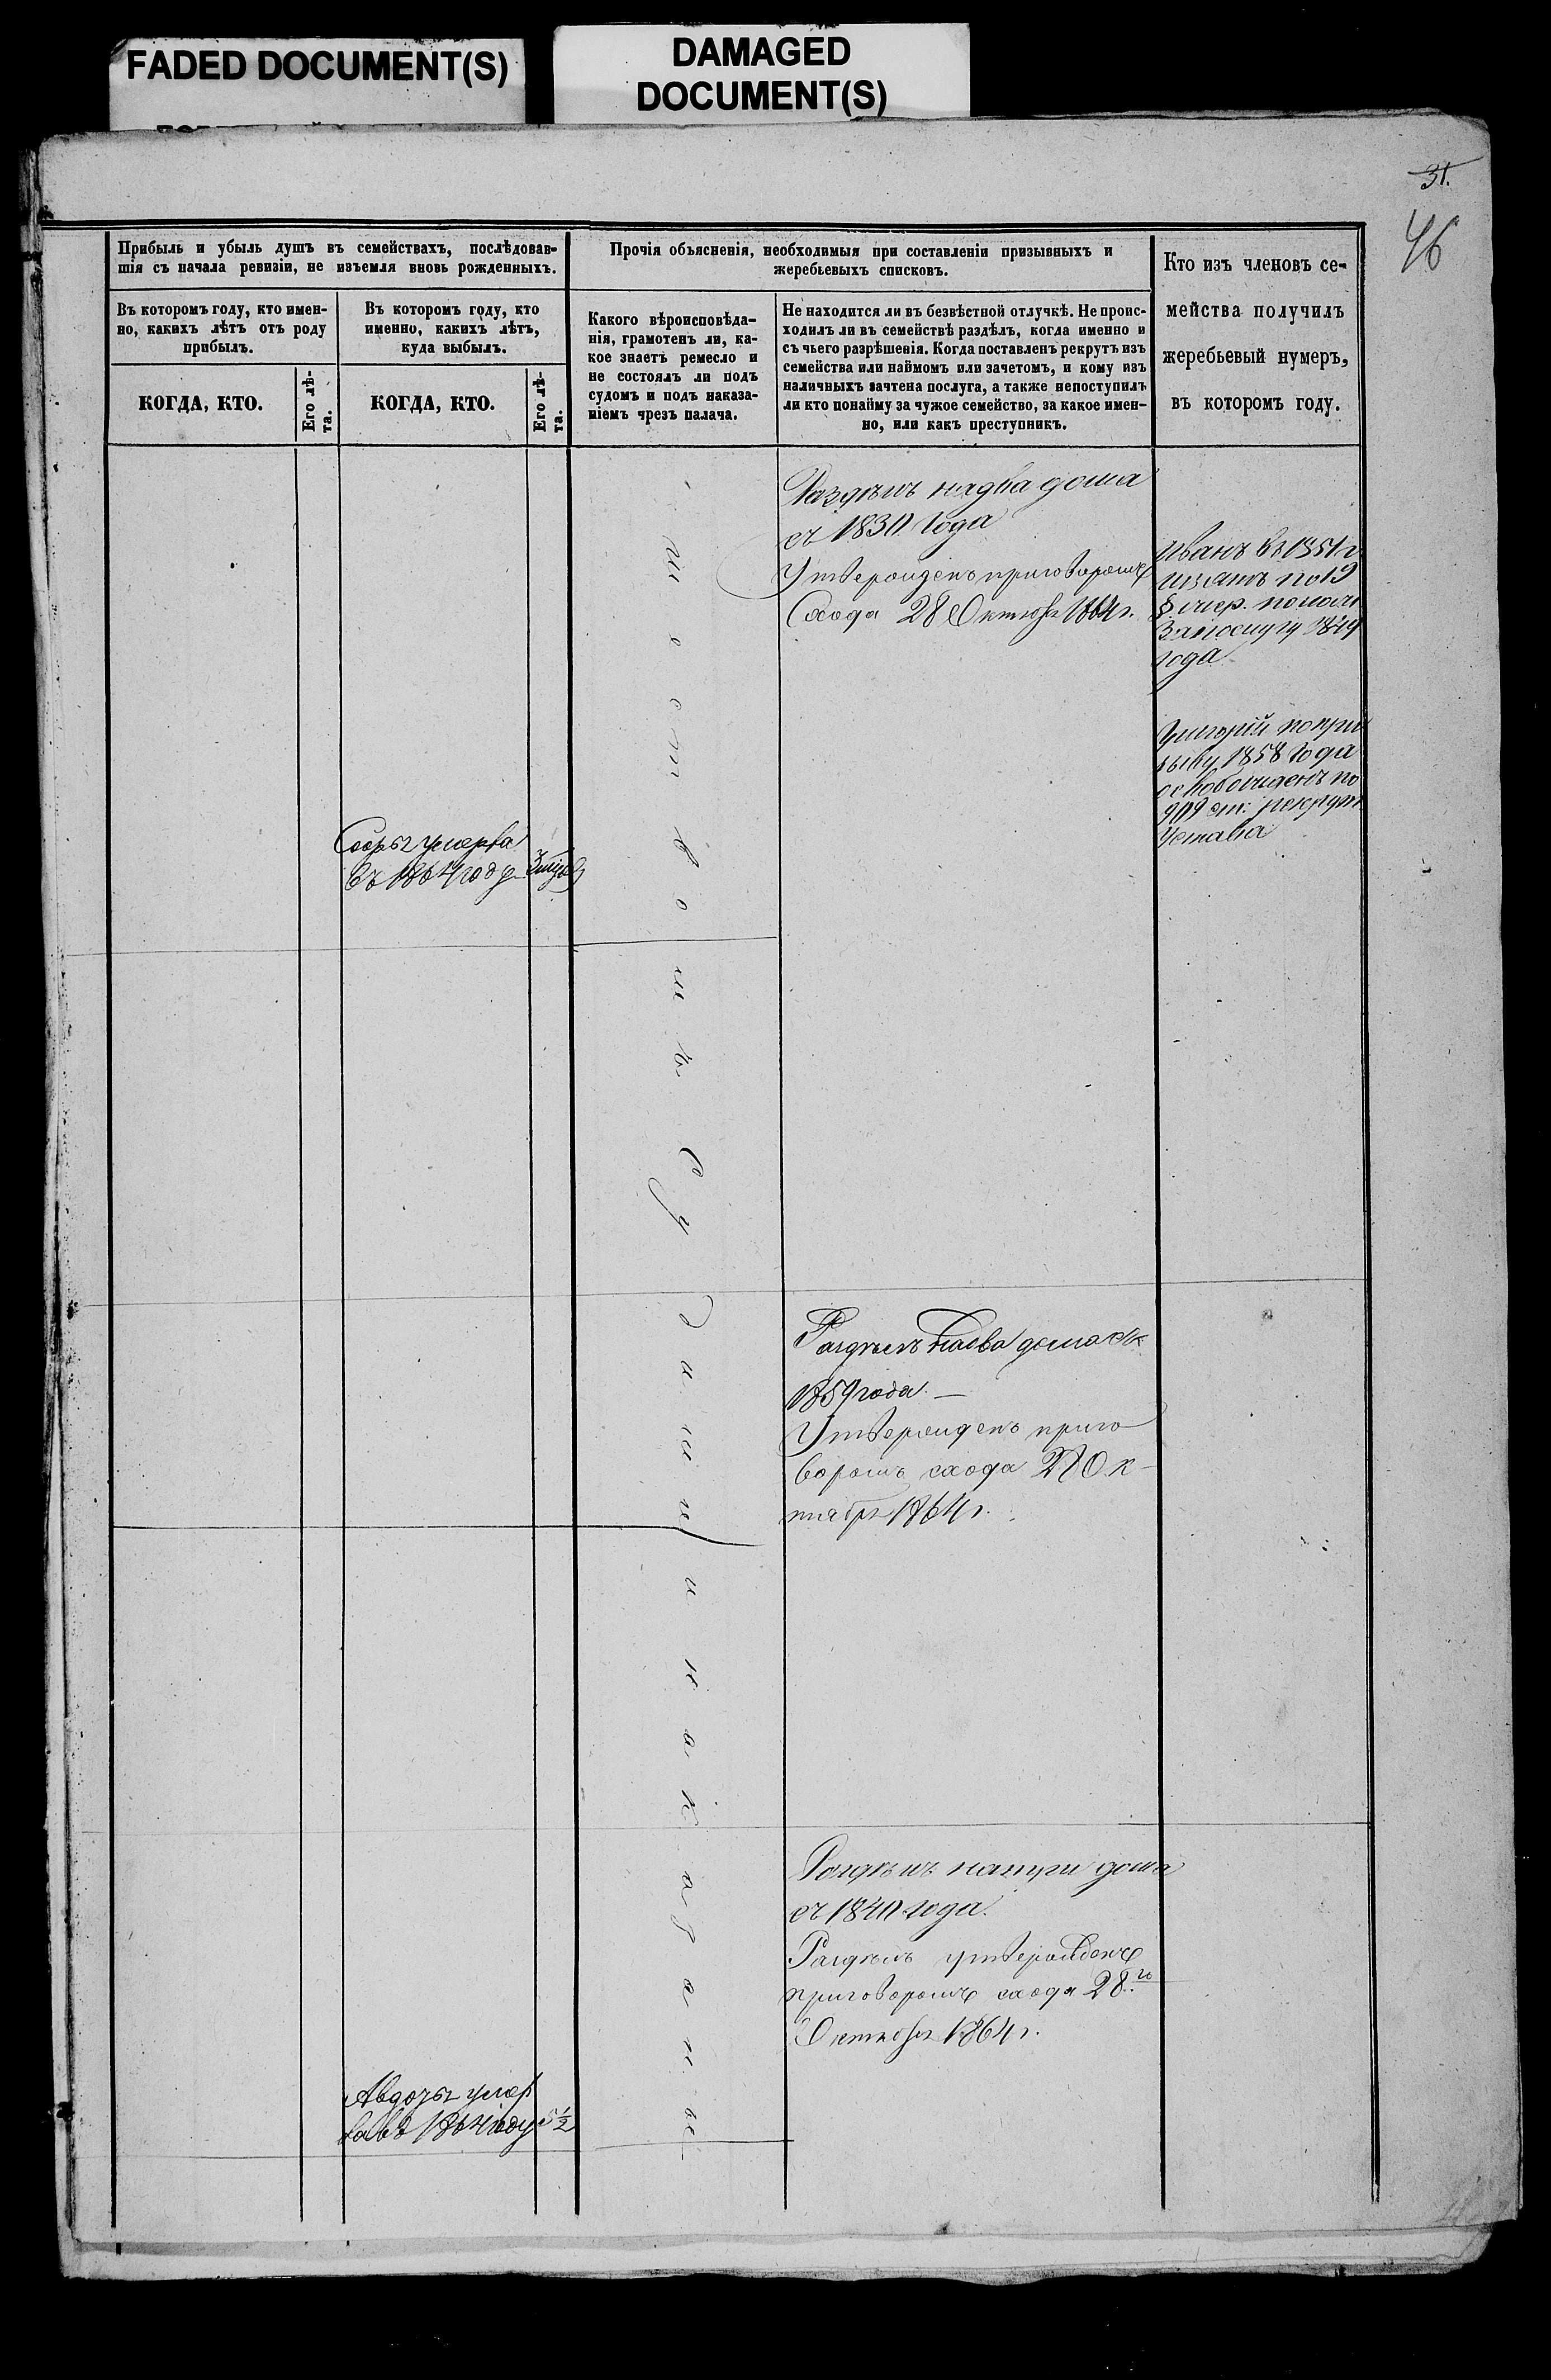 FADED DOCUMENT(S)
DAMAGED
DOCUMENT(S)
31.
46
Прибыль и убыль душъ въ семействахъ, послѣдовав-
шія съ начала ревизіи, не изъемля вновь рожденныхъ.
Въ которомъ году, кто имен-
но, какихъ лѣтъ отъ роду
прибылъ.
Въ которомъ году, кто
именно, какихъ лѣтъ,
куда выбылъ.
КОГДА, КТО.
Его лѣ-
та.
КОГДА, КТО.
Его лѣ-
та.
Прочія объясненія, необходимыя при составленіи призывныхъ и
жеребьевыхъ списковъ.
Какого вѣроисповѣда-
нія, грамотенъ ли, ка-
кое знаетъ ремесло и
не состоялъ ли подъ
судомъ и подъ наказа-
ніемъ чрезъ палача.
Не находится ли въ безвѣстной отлучкѣ. Не проис-
ходилъ ли въ семействѣ раздѣлъ, когда именно и
съ чьего разрѣшенія. Когда поставленъ рекрутъ изъ
семейства или наймомъ или зачетомъ, и кому изъ
наличныхъ зачтена послуга, а также непоступилъ
ли кто понайму за чужое семейство, за какое имен-
но, или какъ преступникъ.
Кто изъ членовъ се-
мейства получилъ
жеребьевый нумеръ,
въ которомъ году.
Раздѣлъ на два дома
съ 1830 года
Утвержденъ приговоромъ
Схода 28 Октября 1864 г.
Иванъ въ 1851 г
по 19
§
за послугу 1849
года
Григорій по при
зыву 1858 года
освобожденъ по
909 ст: рекрут.
Устава
умерла
въ 1864 году
Раздѣлъ на два дома съ
1859 года. —
Утвержденъ приго
воромъ схода 28 Ок-
тября 1864 г.
Раздѣлъ на три дома
съ 1840 года.
Раздѣлъ утвержденъ
приговоромъ схода 28.го
Октября 1864 г.
умер
ла въ 1864 году 5 1/2